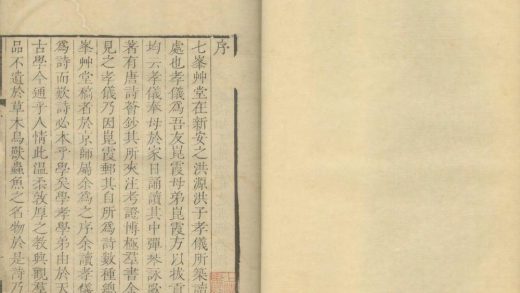 序
七峯艸堂在新安之洪源洪子孝儀所築讀
處也孝儀爲吾友崑霞母弟崑霞方以拔貢
均云孝儀奉母於家日誦讀其中彈琴詠歌
著有唐詩晉鈔其所夾注考證博極羣書余
見之孝儀乃因崑霞郵其自所爲詩數種總
峯艸堂稿者於京師屬余爲之序余讀孝儀
爲詩而歎詩必本乎學矣學孝學弟由於天
古學今通乎人情此溫柔敦厚之教興觀羣
品不遺於草木鳥獸蟲魚之名物於是詩乃